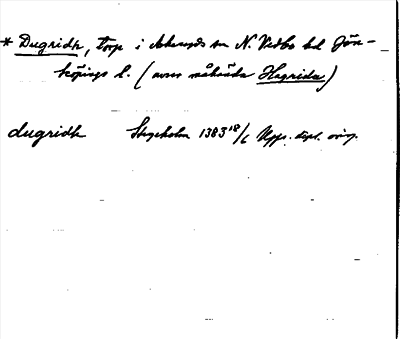 * Dugridh, torp i Askeryds sn N. Vedbo hd Jön-
köpings l. (avser möjl. Hagrida)
dugridh Stegeholm 1383 18/6 Upps. dipl. orig.